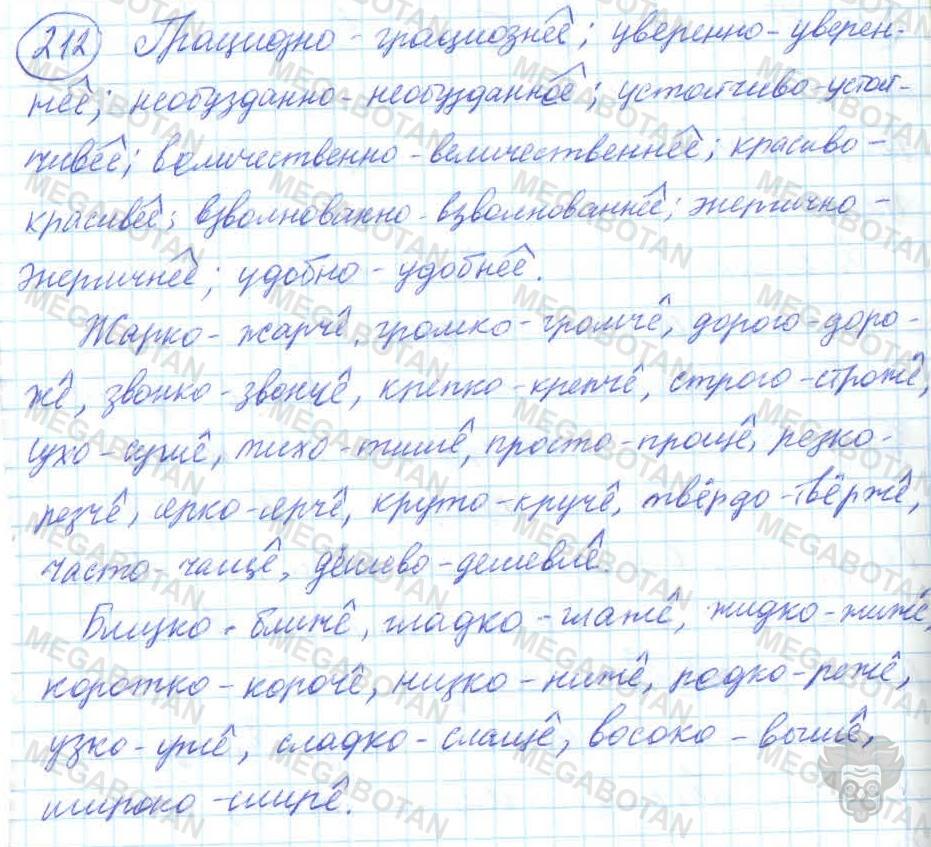 212 Грациозно - грациознее; уверенно - уверен-
нее; необузданно - необузданнее; устойчиво - устой-
чивее; величественно - величественнее; красиво -
красивее; взволнованно - взволнованнее; энергично -
энергичнее; удобно - удобнее.
Жарко - жарче, громко - громче, дорого - доро-
же, звонко - звонче, крепко - крепче, строго - строже,
сухо - суше, тихо - тише, просто - проще, резко -
резче, ярко - ярче, круто - круче, твёрдо - твёрже,
часто - чаще, дёшево - дешевле.
Близко - ближе, гладко - глаже, жидко - жиже,
коротко - короче, низко - ниже, редко - реже,
узко - уже, сладко - слаще, восоко - выше,
широко - шире.
MEGABOTAN